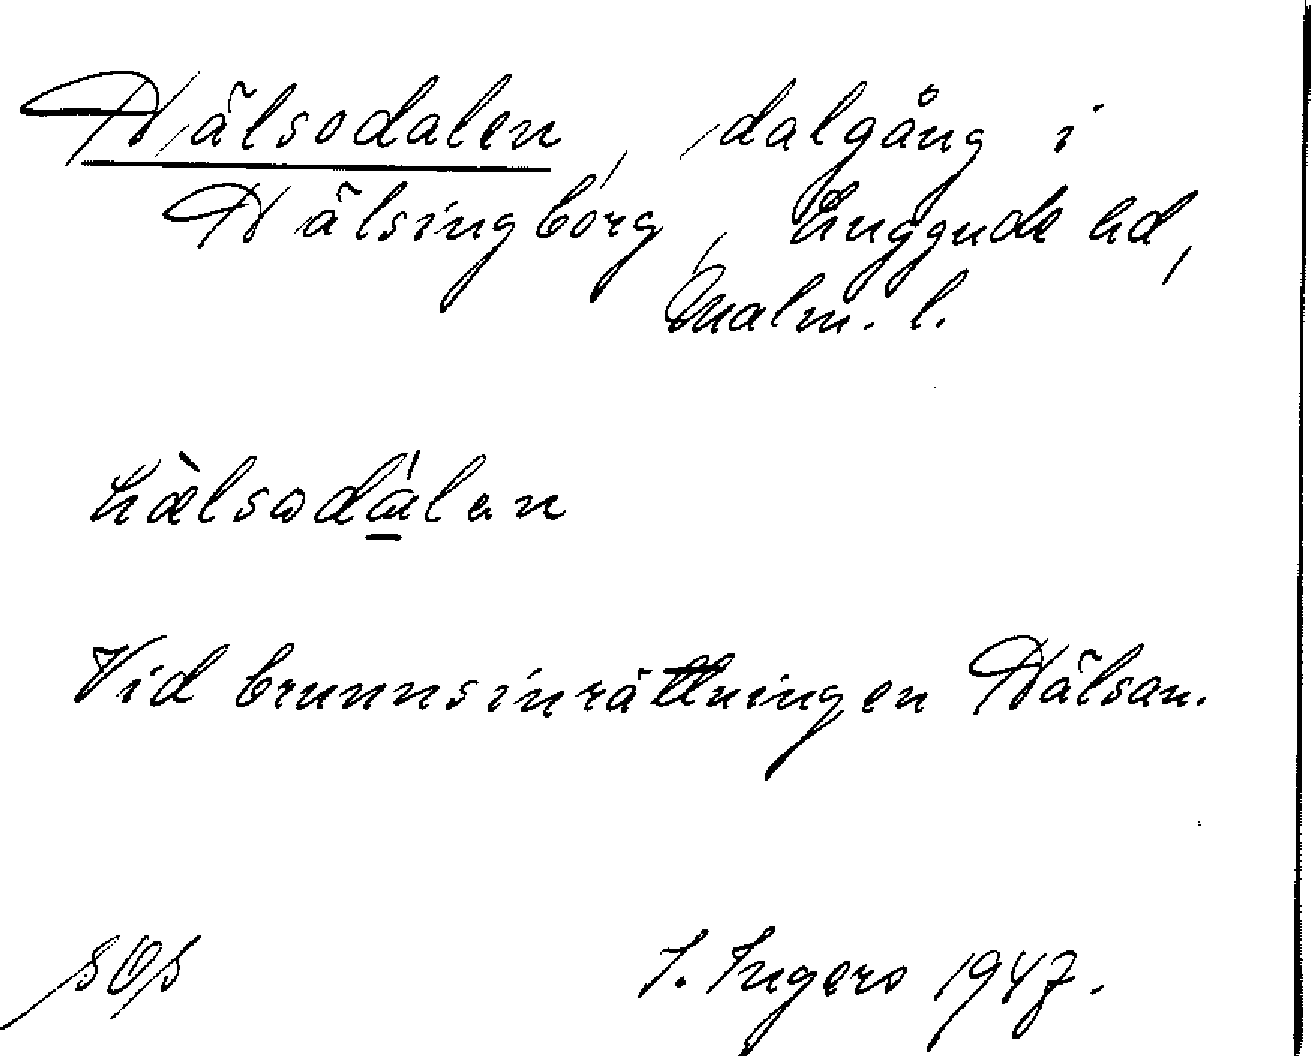 Hälsodalen, dalgång i
Hälsingborg, Luggude hd,
Malm. l.
hälsodálen
Vid brunnsinrättningen Hälsan.
I. Ingers 1947.